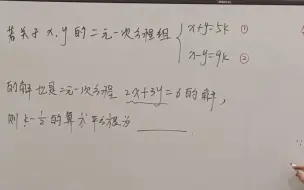 若关于 x,y 的二元一次方程组 { x+y=5k ①
x-y=9k ②
的解也是二元一次方程 2x+3y=6 的解,
则 k-½ 的算术平方根为 ____